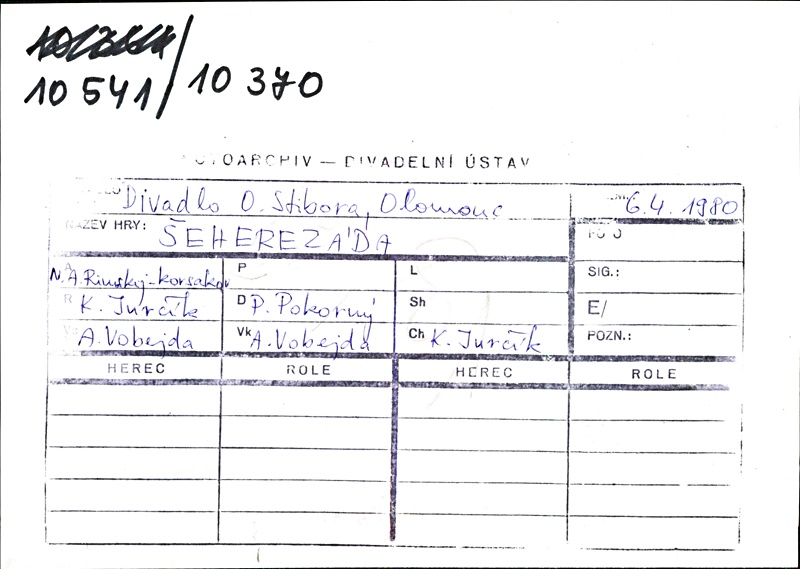 10 541 / 10 370
FOTOARCHIV — DIVADELNÍ ÚSTAV
Divadlo O. Stibora, Olomouc 6.4. 1980
NÁZEV HRY: ŠEHEREZÁDA
N.A. Rimskij-Korsakov P L SIG.:
R K. Jurčík D P. Pokorný Sh E/
A. Vobejda Vk A. Vobejda Ch K. Jurčík POZN.:
HEREC ROLE HEREC ROLE